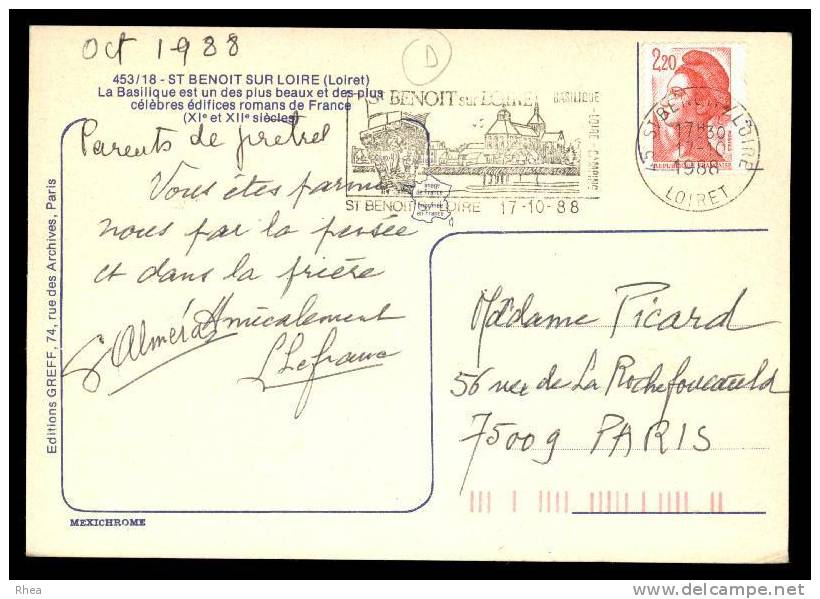 oct 1988
D
453/18 - ST BENOIT SUR LOIRE (Loiret)
La Basilique est un des plus beaux et des plus
célèbres édifices romans de France
(XIe et XIIe siècles)
Parents de
Vous êtes parmi
nous par la pensée
et dans la prière
Amicalement
G Alméras
L Lefranc
ST BENOIT sur LOIRE
BASILIQUE - LOIRE - CAMPING
ST BENOIT LOIRE 17-10-88
image
de France
imprimée
en France
2,20
45 ST BENOIT S/ LOIRE
17H30
17-10
1988
LOIRET
Madame Picard
56 rue de La Rochefoucauld
75009 PARIS
Editions GREFF, 74, rue des Archives, Paris
MEXICHROME
Rhea
delcampe.net